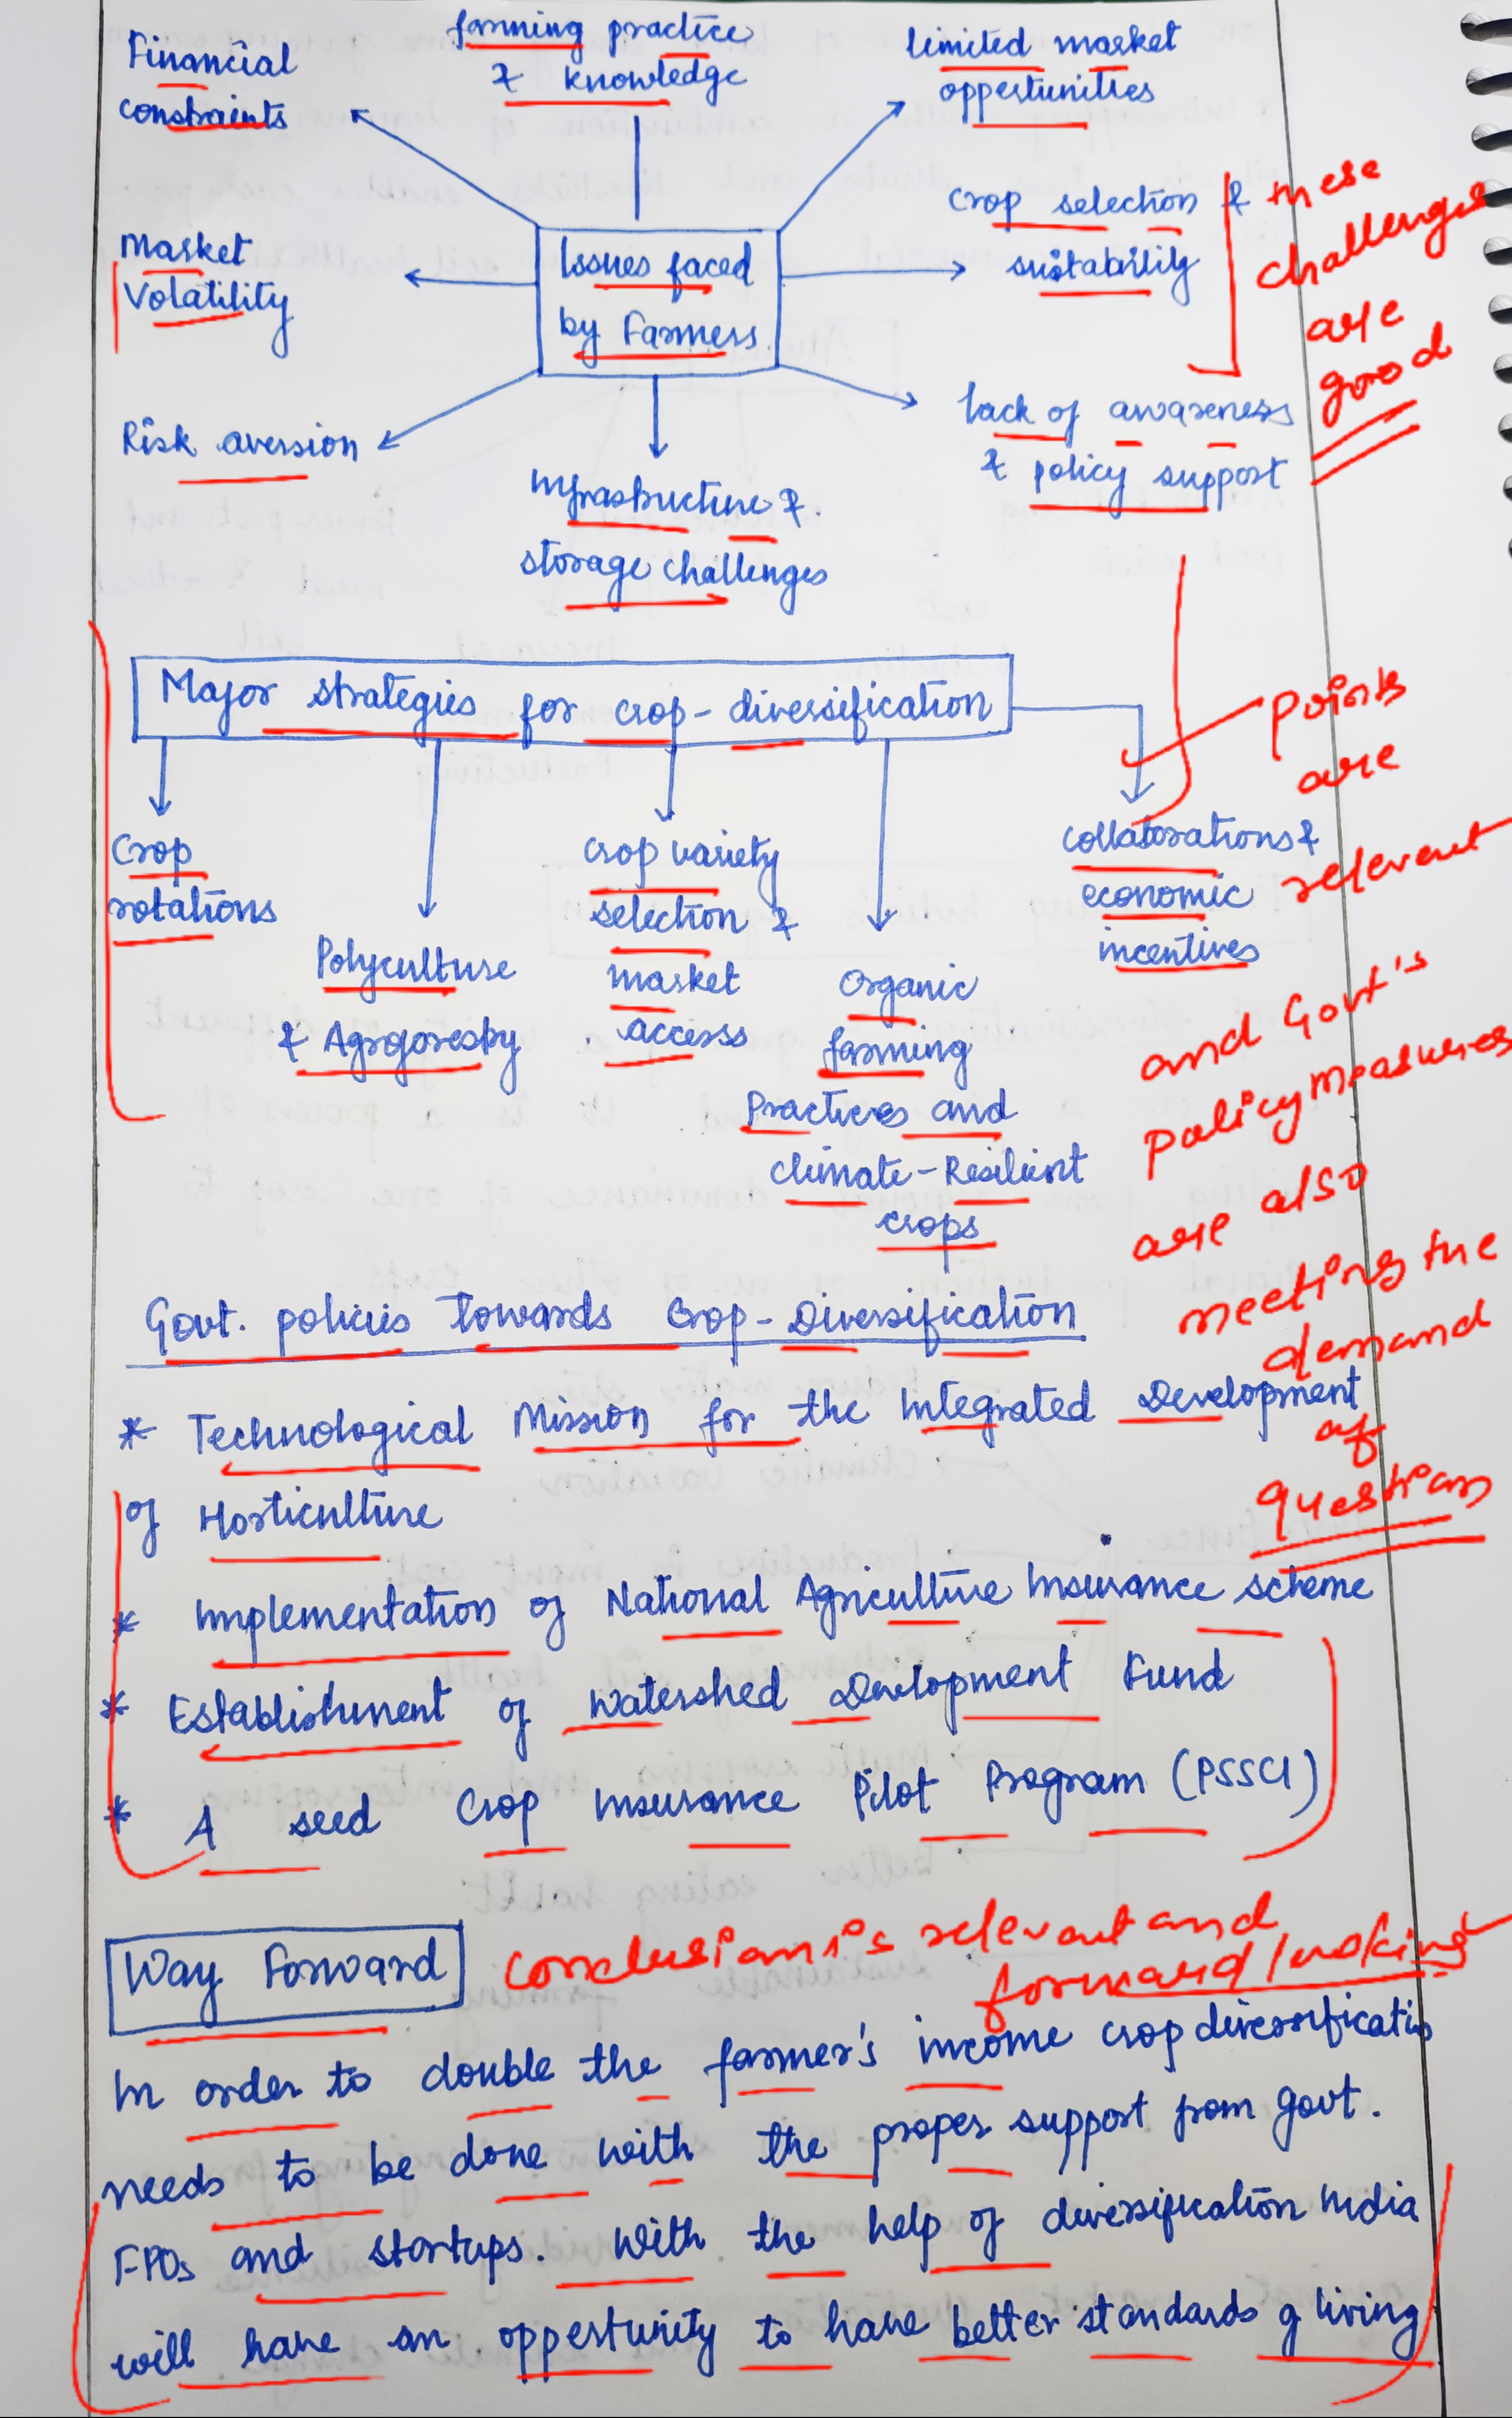 Financial
constraints
farming practice
& knowledge
limited market
opportunities
Crop selection &
suitability
these
challenges
are
good
Market
Volatility
Issues faced
by Farmers
Risk aversion
Infrastructure &
storage challenges
lack of awareness
& policy support
Major strategies for crop-diversification
points
are
relevent
Crop
rotations
Polyculture
& Agroforestry
Crop variety
selection &
market
access
Organic
farming
Practices and
climate-Resilient
crops
collaborations &
economic
incentives
and Govt's
policy measures
are also
meeting the
demand
of
question
Govt. policies towards Crop-Diversification
* Technological Mission for the Integrated Development
of Horticulture
* Implementation of National Agriculture Insurance scheme
* Establishment of Watershed Development Fund
* A seed Crop Insurance Pilot Program (PSSCI)
Way Forward
Conclusion is relevant and
forward looking
In order to double the farmer's income crop diversificatio
needs to be done with the proper support from govt.
FPOs and startups. With the help of diversification India
will have an oppertunity to have better standards of living